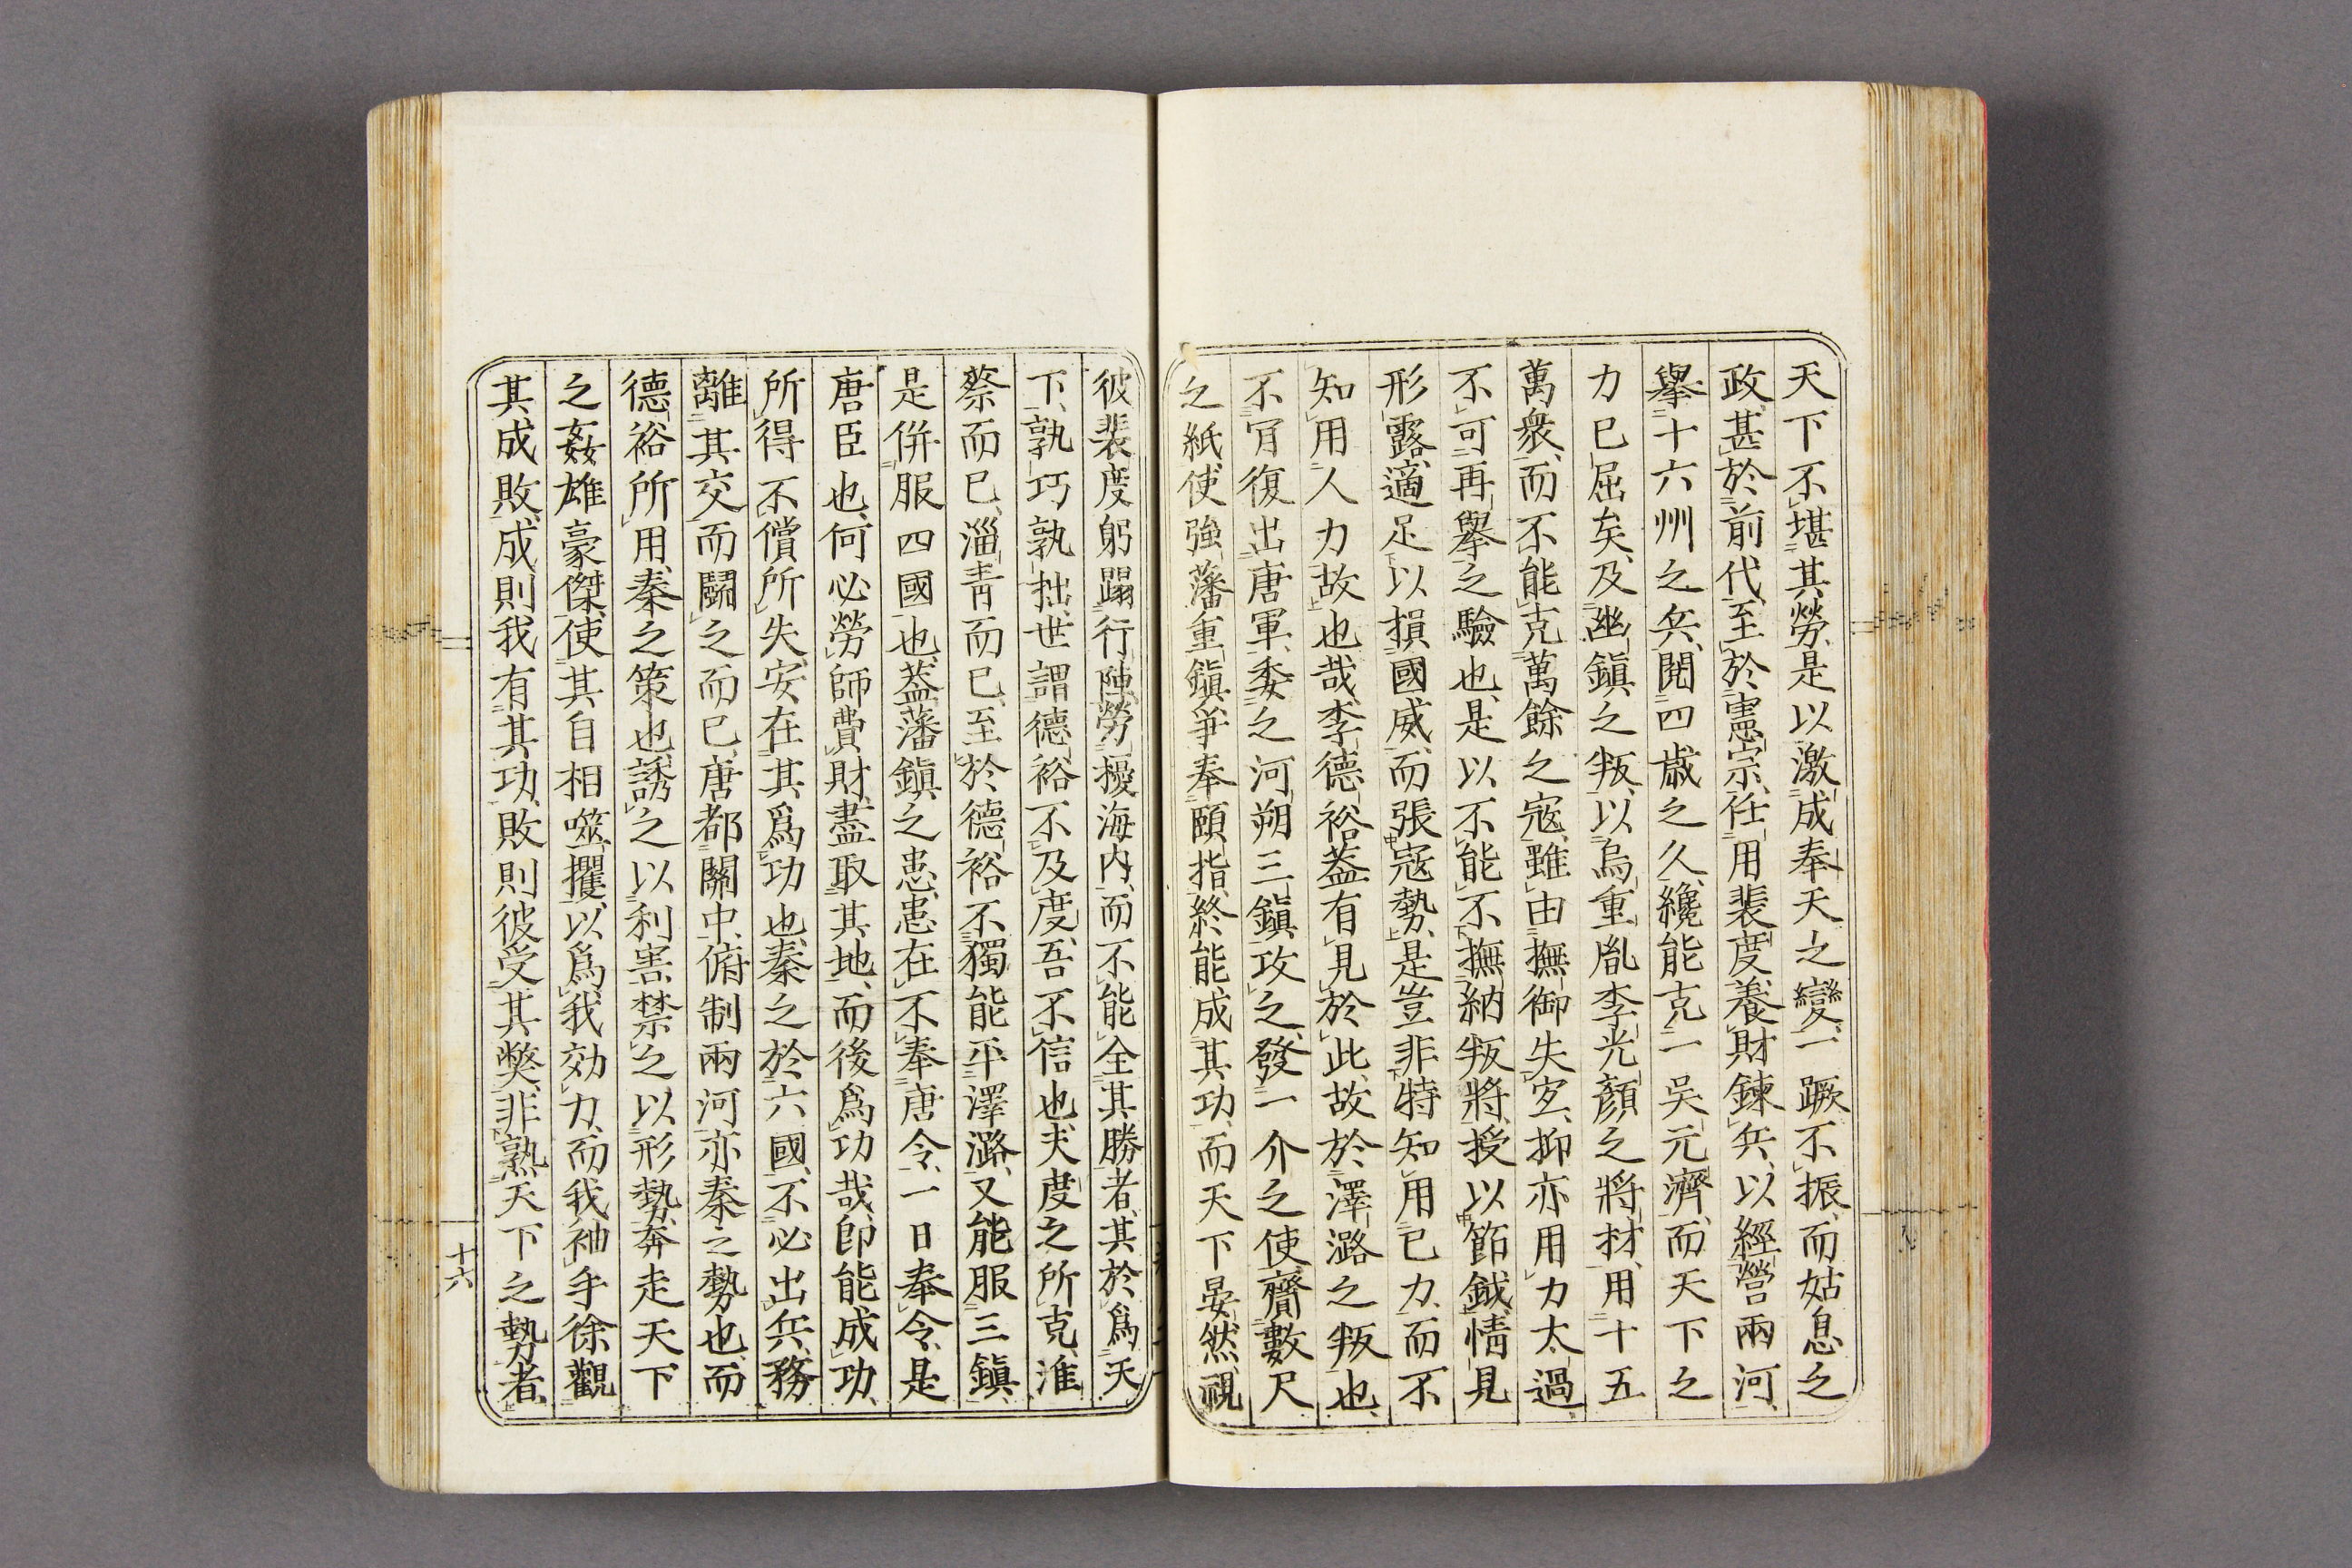 天下不堪其勞、是以激成奉天之變、一蹶不振、而姑息之
政、甚於前代、至於憲宗、任用裴度、養財鍊兵、以經營兩河、
擧十六州之兵、閱四歲之久、纔能克一吳元濟、而天下之
力已屈矣、及幽鎭之叛、以烏重胤李光顏之將材、用十五
萬衆、而不能克萬餘之寇、雖由撫御失宐、抑亦用力太過、
不可再擧之驗也、是以不能不撫納叛將、授以節鉞、情見
形露、適足以損國威、而張寇勢、是豈非特知用己力、而不
知用人力故也哉、李德裕蓋有見於此、故於澤潞之叛也、
不肎復出唐軍、委之河朔三鎭攻之、發一介之使、齎數尺
之紙、使強藩重鎭爭奉頤指、終能成其功、而天下晏然、視
彼裴度躬蹋行陣、勞擾海内、而不能全其勝者、其於爲天
下、孰巧孰拙、世謂德裕不及度、吾不信也、夫度之所克、淮
蔡而已、淄青而已、至於德裕、不獨能平澤潞、又能服三鎭、
是併服四國也、蓋藩鎭之患、患在不奉唐令、一日奉令、是
唐臣也、何必勞師費財、盡取其地、而後爲功哉、卽能成功、
所得不償所失、安在其爲功也、秦之於六國、不必出兵、務
離其交而鬭之而已、唐都關中、俯制兩河、亦秦之勢也、而
德裕所用、秦之策也、誘之以利害、禁之以形勢、奔走天下
之姦雄豪傑、使其自相噬攫、以爲我効力、而我袖手徐觀
其成敗、成則我有其功、敗則彼受其獘、非熟天下之勢者、
十六